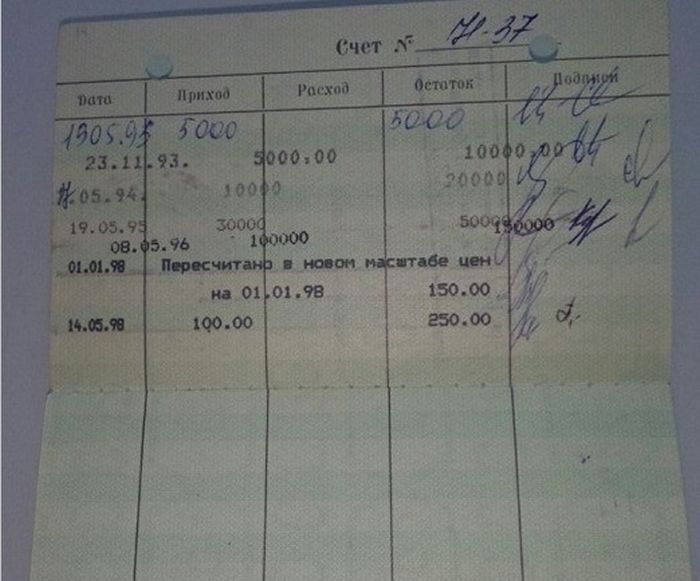 Счет № Н-37
Дата Приход Расход Остаток Подписи
1305.93 5000 5000
23.11.93. 5000,00 10000,00
.05.94. 10000 20000
19.05.95 30000 50000
08.05.96 100000 150000
01.01.98 Пересчитано в новом масштабе цен
на 01.01.98 150.00
14.05.98 100.00 250.00